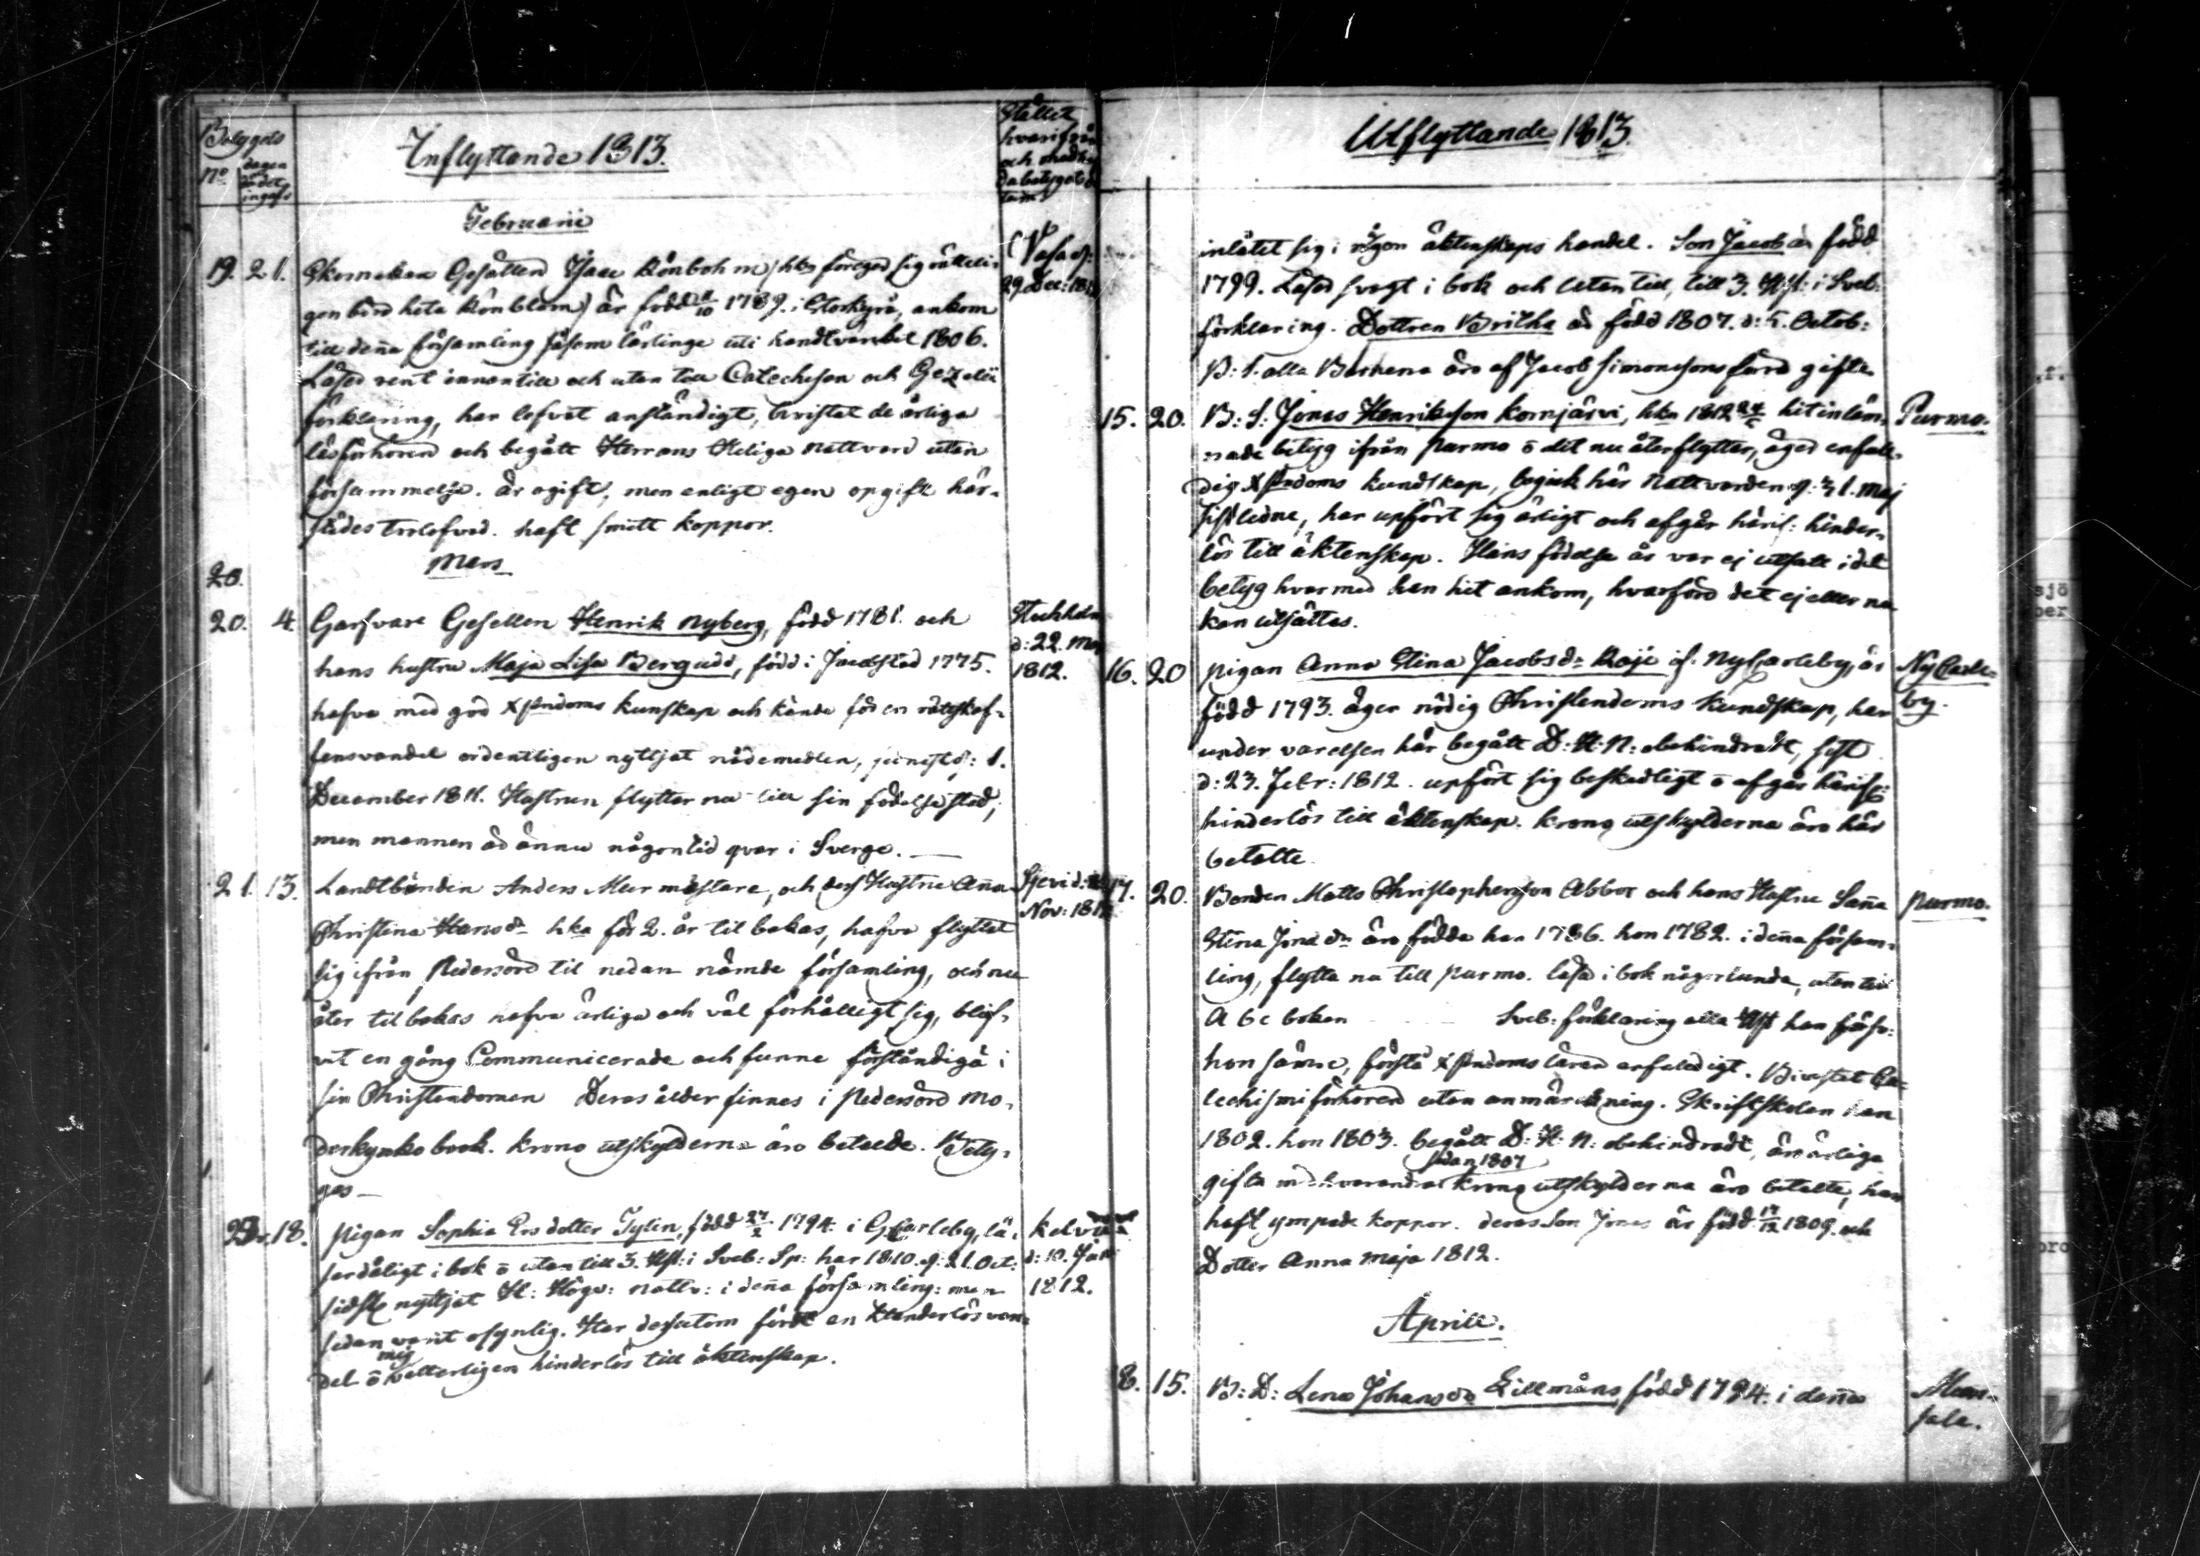 Betygets
No dagen då det ingafs
Inflyttande 1813.
Stället hvarifrån och
da betyget
Februarii
19. 21. Skomakare Gesällen Isaac Rönbohm (hkn föregaf sig rätteli-
gen böra heta Rönblom) är född 1789. i Storkyro, ankom
till denna församling såsom lärlinge uti handtverket 1806.
Läser rent innantill och utan till Catechesen och Gezelii
förklaring, har lefvat anständigt, bivistat de årliga
läsförhören och begått Herrans Heliga nattvard utan
försummelse. Är ogift, men enligt egen opgift här-
städes trolofvad. haft smitt koppor.
Vasa d:
29 Dec:
Mars
20.
20. 4. Garfvare Gesellen Henrik Nyberg, född 1781. och
hans hustru Maja Lisa Bergudd, född i Jacobstad 1775.
hafva med god Xstndoms kunskap och kända för en rätskaf-
fensvandel ordentligen nyttjat nådemedlen, d: 1.
December 1811. Hustrun flyttar nu till sin födelsestad,
men mannen är ännu någon tid qvar i Sverge.
Stockholm
d: 22. Maj
1812.
21. 13. Landtbonden Anders Murmästare, och dess Hustru Anna
Christina Hansdr hka för 2. år tilbakas, hafva flyttat
sig ifrån Pedersöre til nedan nämde församling, och nu
åter tilbakas hafva ärliga och väl förhålligt sig, blif-
vit en gång Communicerade och funne förståndiga i
sin Christendomen Deras ålder finnes i Pedersöre Mo-
derkyrko book. Krono utskylderna äro betalde. Bety-
gas
Nov: 181
22. 18. Pigan Sophia Ersdotter Tylin, född 27/2 1794 i GCarleby, lä-
ser dåligt i bok o utan till 3. Hst: i Sveb: Sp: har 1810. d: 21 Oct:
sidst nyttjat H: Högv: nattv: i denna församling: men
sedan varit osynlig. Har dessutom fört en klanderlös van-
del o mig vetterligen hinderlös till äktenskap.
Kelviå
d: 10. Jan
1812.
Utflyttande 1813.
inlåtet sig i någon äktenskaps handel. Son Jacob är född
1799. Läser svagt i bok och utan till, till 3. Hst: i Sveb:
förklaring. Dottren Britha är född 1807. d: 5. Octob:
B: S. alla Barnena äro af Jacob Simonssons förra gifte.
15. 20. B: S: Jonas Henriksson Kornjärvi, hkn 1812 hitinläm-
nade betyg ifrån Purmo o dit nu återflyttar, äger enfal-
dig Xstndoms kundskap, begick här Nattvarden d: 31. Maj
sistledne, har upfört sig ärligt och afgår härif: hinder-
lös till äktenskap. Hans födelse år var ej utsatt i det
betyg hvarmed han hit ankom, hvarföre det ej eller nu
kan utsättas.
Purmo.
16. 20 Pigan Anna Stina Jacobsdr Raje af NyCarleby, är
född 1793. äger nödig Christendoms Kundskap, har
under varelsen här begått D: H: N: obehindradt, sist
d: 23. Febr: 1812. upfört sig beskedligt o afgår härifr:
hinderlös till äktenskap. Krono utskylderna äro här
betalte.
NyCarle-
by.
17. 20. Bonden Matts Christophersson Abbor och hans Hustru Sanna
Stina Jona dr äro födda han 1786. hon 1782. i denna försam-
ling, flytta nu till Purmo. läsa i bok någorlunda, utan till
A b c boken Sveb: förklaring alla Hst han
hon sämre, förstå Xstndoms läran enfaldigt. Bivistat Ca-
techismi förhören utan anmärckning. Skriftskolan han
1802. hon 1803. begått D: H: N: obehindradt, äro ärliga
gifta med hvarandra sedan 1807 Krono utskylderna äro betalte, han
haft ympade koppor. deras Son Jonas är född 17/12 1809. och
Dotter Anna Maja 1812.
Purmo.
Aprill.
8. 15. B: D: Lena Johansdr Lillmåns, född 1794. i denna
Mun-
sala.